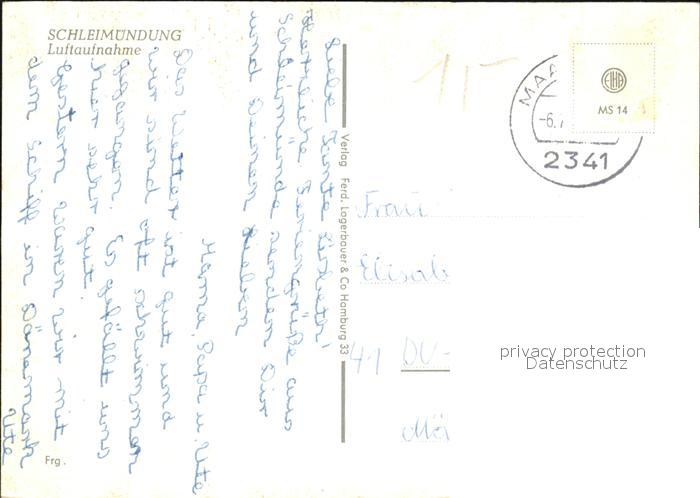 SCHLEIMÜNDUNG
Luftaufnahme
Liebe Tante Lisbeth!
Herzliche Feriengrüße aus
Schleimünde senden Dir
und Deinen Lieben
Mama, Papa u. Ute
Das Wetter ist gut und
wir sind oft schwimmen
gegangen. Es gefällt uns
hier sehr gut.
Gestern waren wir mit
dem Schiff in Dänemark
Ute
Frg.
Verlag Ferd. Lagerbauer & Co Hamburg 33
MAA
-6.
2341
EHA
MS 14
Frau
Elisab
41 DU-
privacy protection
Datenschutz